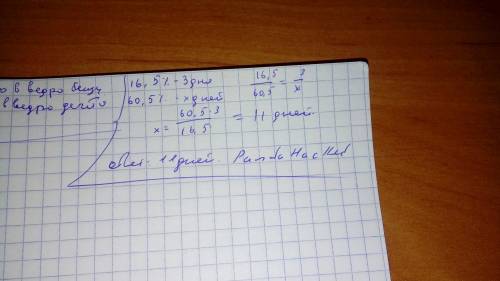 в ведро
в ведро
16,5% - 3 дня
60,5% - x дней
16,5/60,5 = 3/x
x = 60,5·3/16,5 = 11 дней
Ответ: 11 дней. PandaHacKet